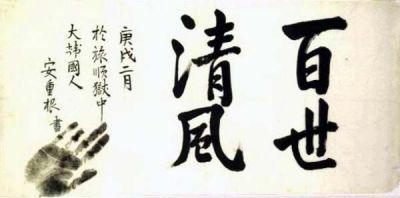 百世
清風
庚戌二月
於旅順獄中
大韓國人
安重根 書